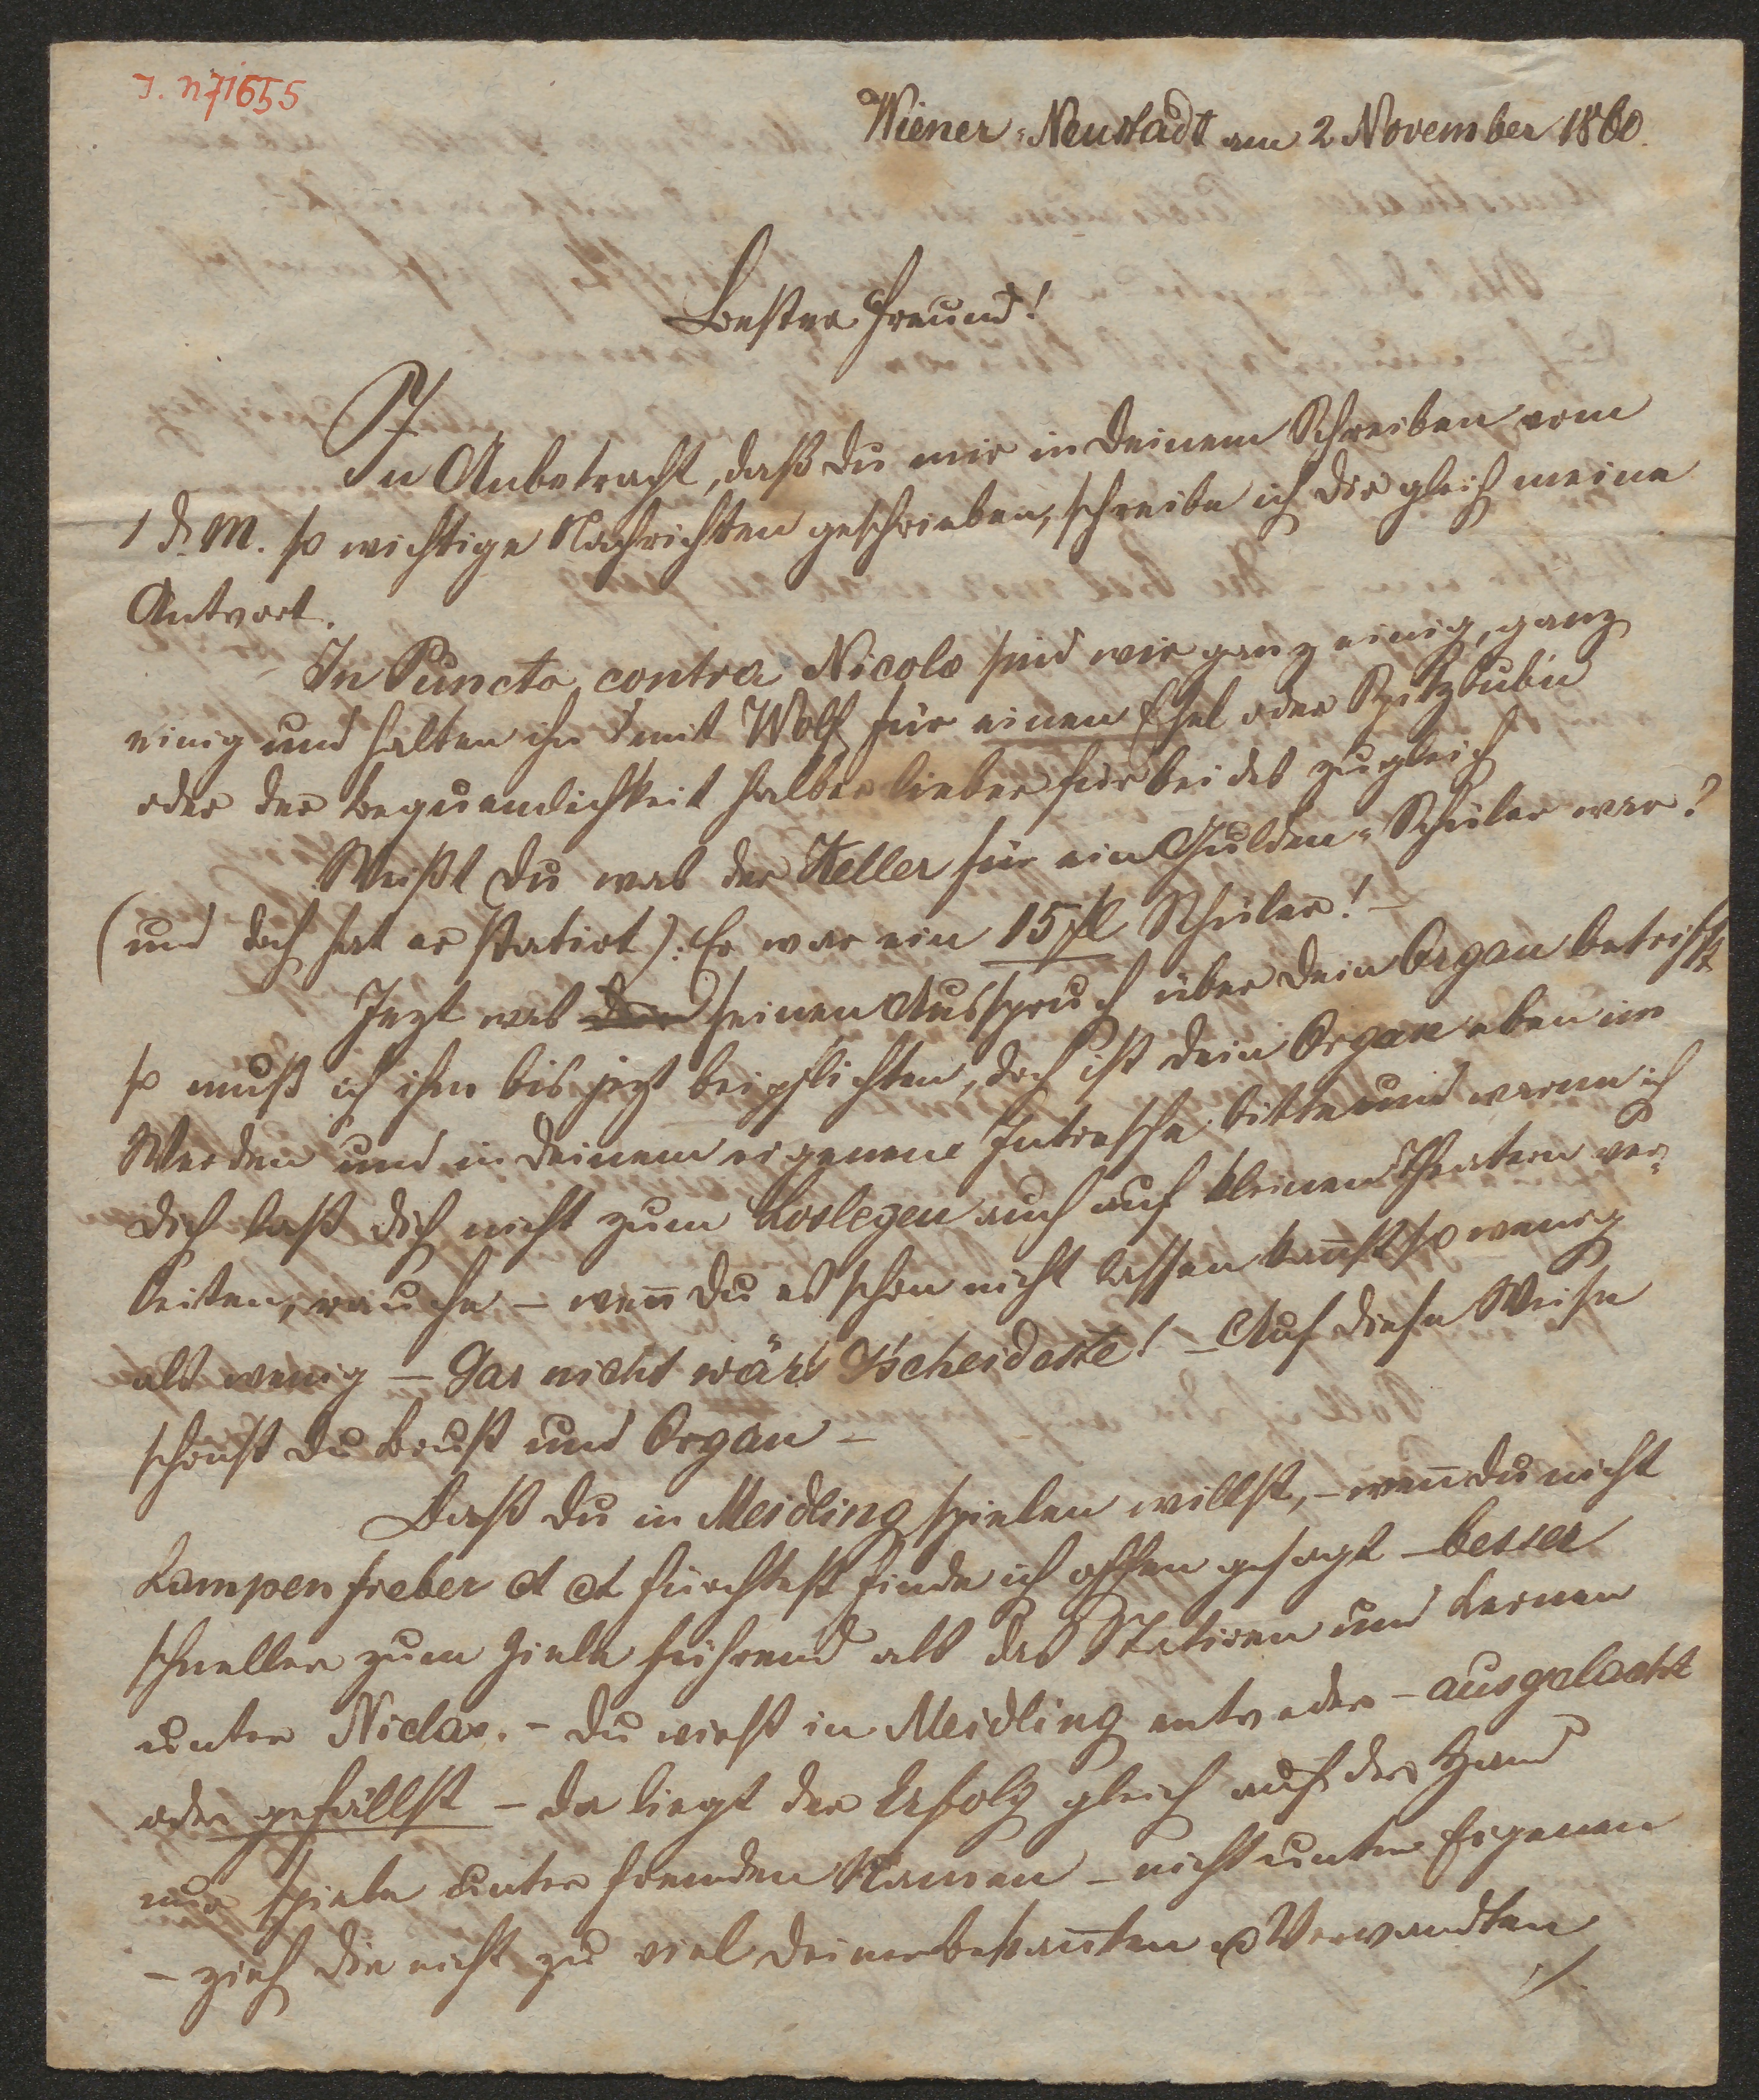 J. N 71655
Wiener-Neustadt am 2 November 1860.
Bester Freund!
In Anbetracht, daß du mir in deinem Schreiben vom
1 d. M. so wichtige Nachrichten geschrieben, schreibe ich dir gleich meine
Antwort.
In Puncto contra Nicolo sind wir ganz einig, ganz
einig und halten ihn mit Wolf für einen Esel oder Spitzbubn
oder der Bequemlichkeit halber lieber für beides zugleich
Weißt du was der Keller für ein Gulden-Schüler war?
(und doch hat er statirt): Er war ein 15 fl Schüler! –
Jezt was seinen Ausspruch über dein Organ betrifft
so muß ich ihm bis jezt beipflichten, doch ist dein Organ eben im
Werden und in deinem eigenem Intresse bitte und warne ich
dich laß dich nicht zum Loslegen auch auf kleinen Theatern ver-
leiten, rauche – weñ du es schon nicht lassen kañst so wenig
als wenig – Gar nicht wär's G'scheideste! – Auf diese Weise
schonst du Brust und Organ –
Daß du in Meidling spielen willst, – weñ du nicht
Lampenfieber et et fürchtest finde ich offen gesagt – besser
schneller zum Ziele führend als das Statiren und Lernen
unter Niclas. – du wirst in Meidling entweder – ausgelacht
oder gefällst – da liegt der Erfolg gleich auf der Hand
nur spiele unter fremden Namen – nicht unter Eigenen
– zieh dir nicht zu viel deiner Bekañten u Verwandten
./.